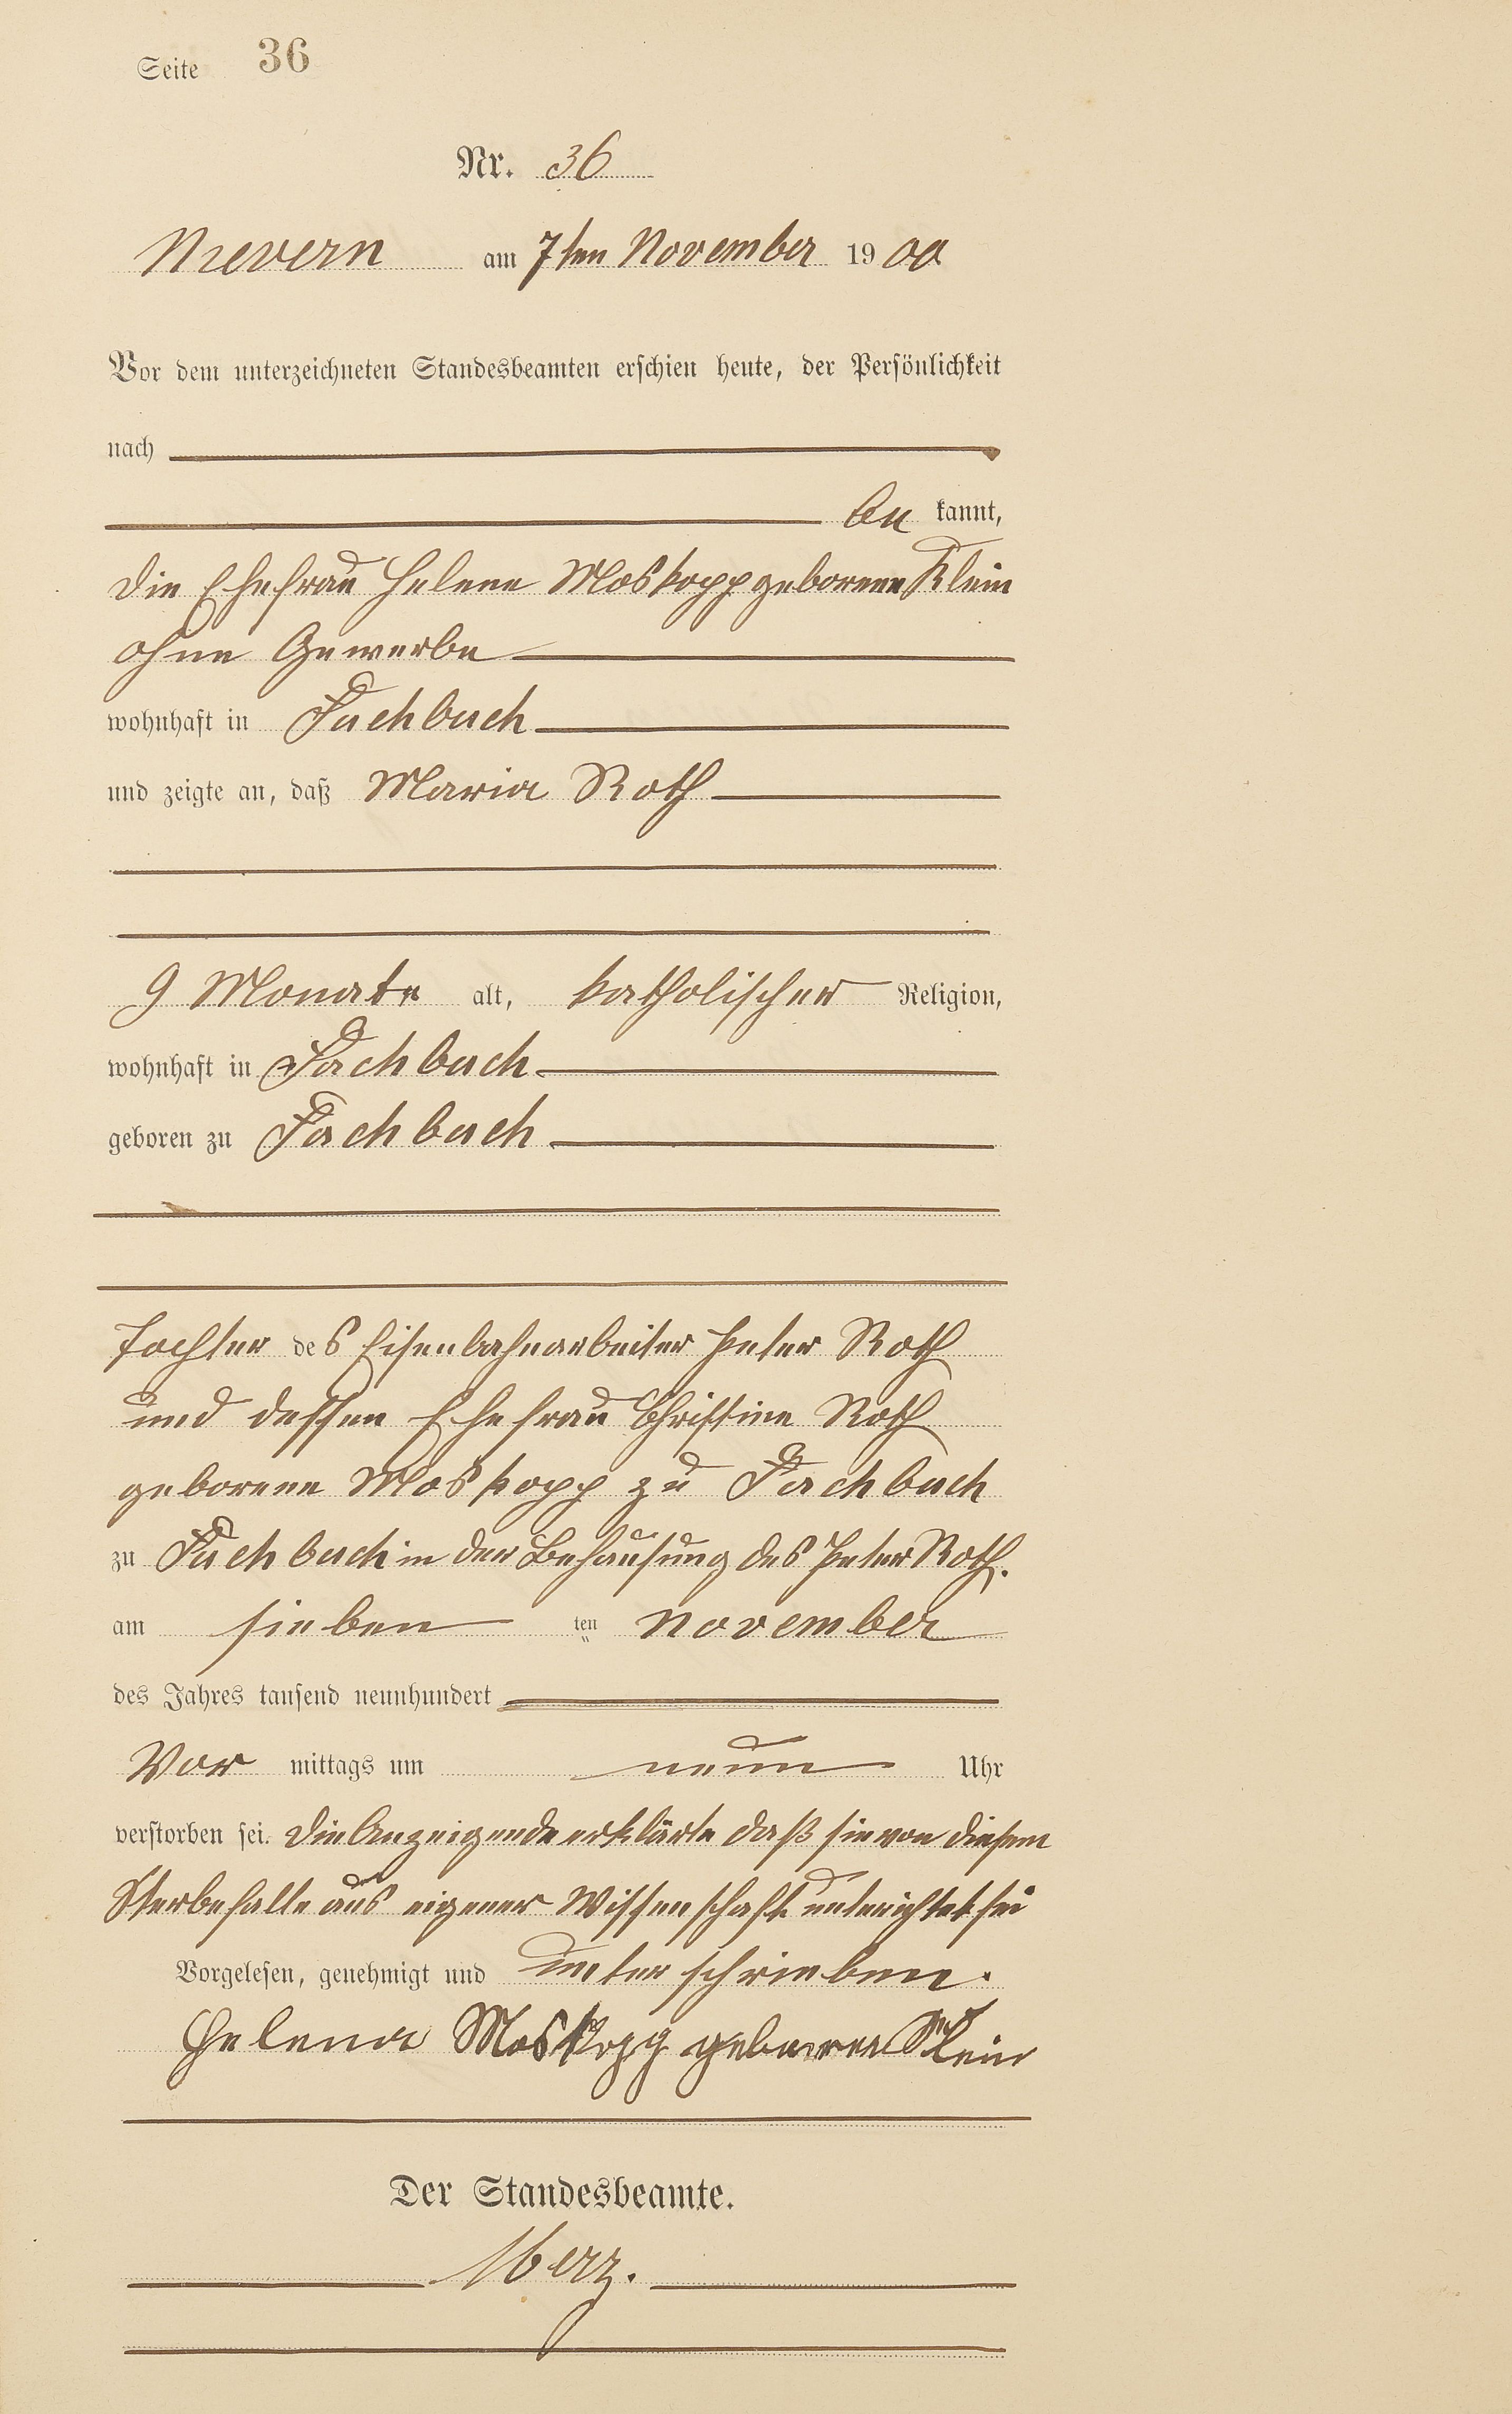 Seite 36
Nr. 36
Nievern am 7ten November 1900
Vor dem unterzeichneten Standesbeamten erschien heute, der Persönlichkeit
nach
be kannt,
die Ehefrau Helene Moskopp geborene Klein
ohne Gewerbe
wohnhaft in Fachbach
und zeigte an, daß Maria Roth
9 Monate alt, katholischer Religion,
wohnhaft in Fachbach
geboren zu Fachbach
Tochter des Eisenbahnarbeiter Peter Roth
und dessen Ehefrau Christine Roth
geborene Moskopp zu Fachbach
zu Fachbach in der Behausung des Peter Roth.
am sieben ten November
des Jahres tausend neunhundert
Vor mittags um neun Uhr
verstorben sei. Die Anzeigende erklärte daß sie von diesem
Sterbefalle aus eigener Wissenschaft unterichtet sei
Vorgelesen, genehmigt und unterschrieben.
Helena Moskopp geborene Klein
Der Standesbeamte.